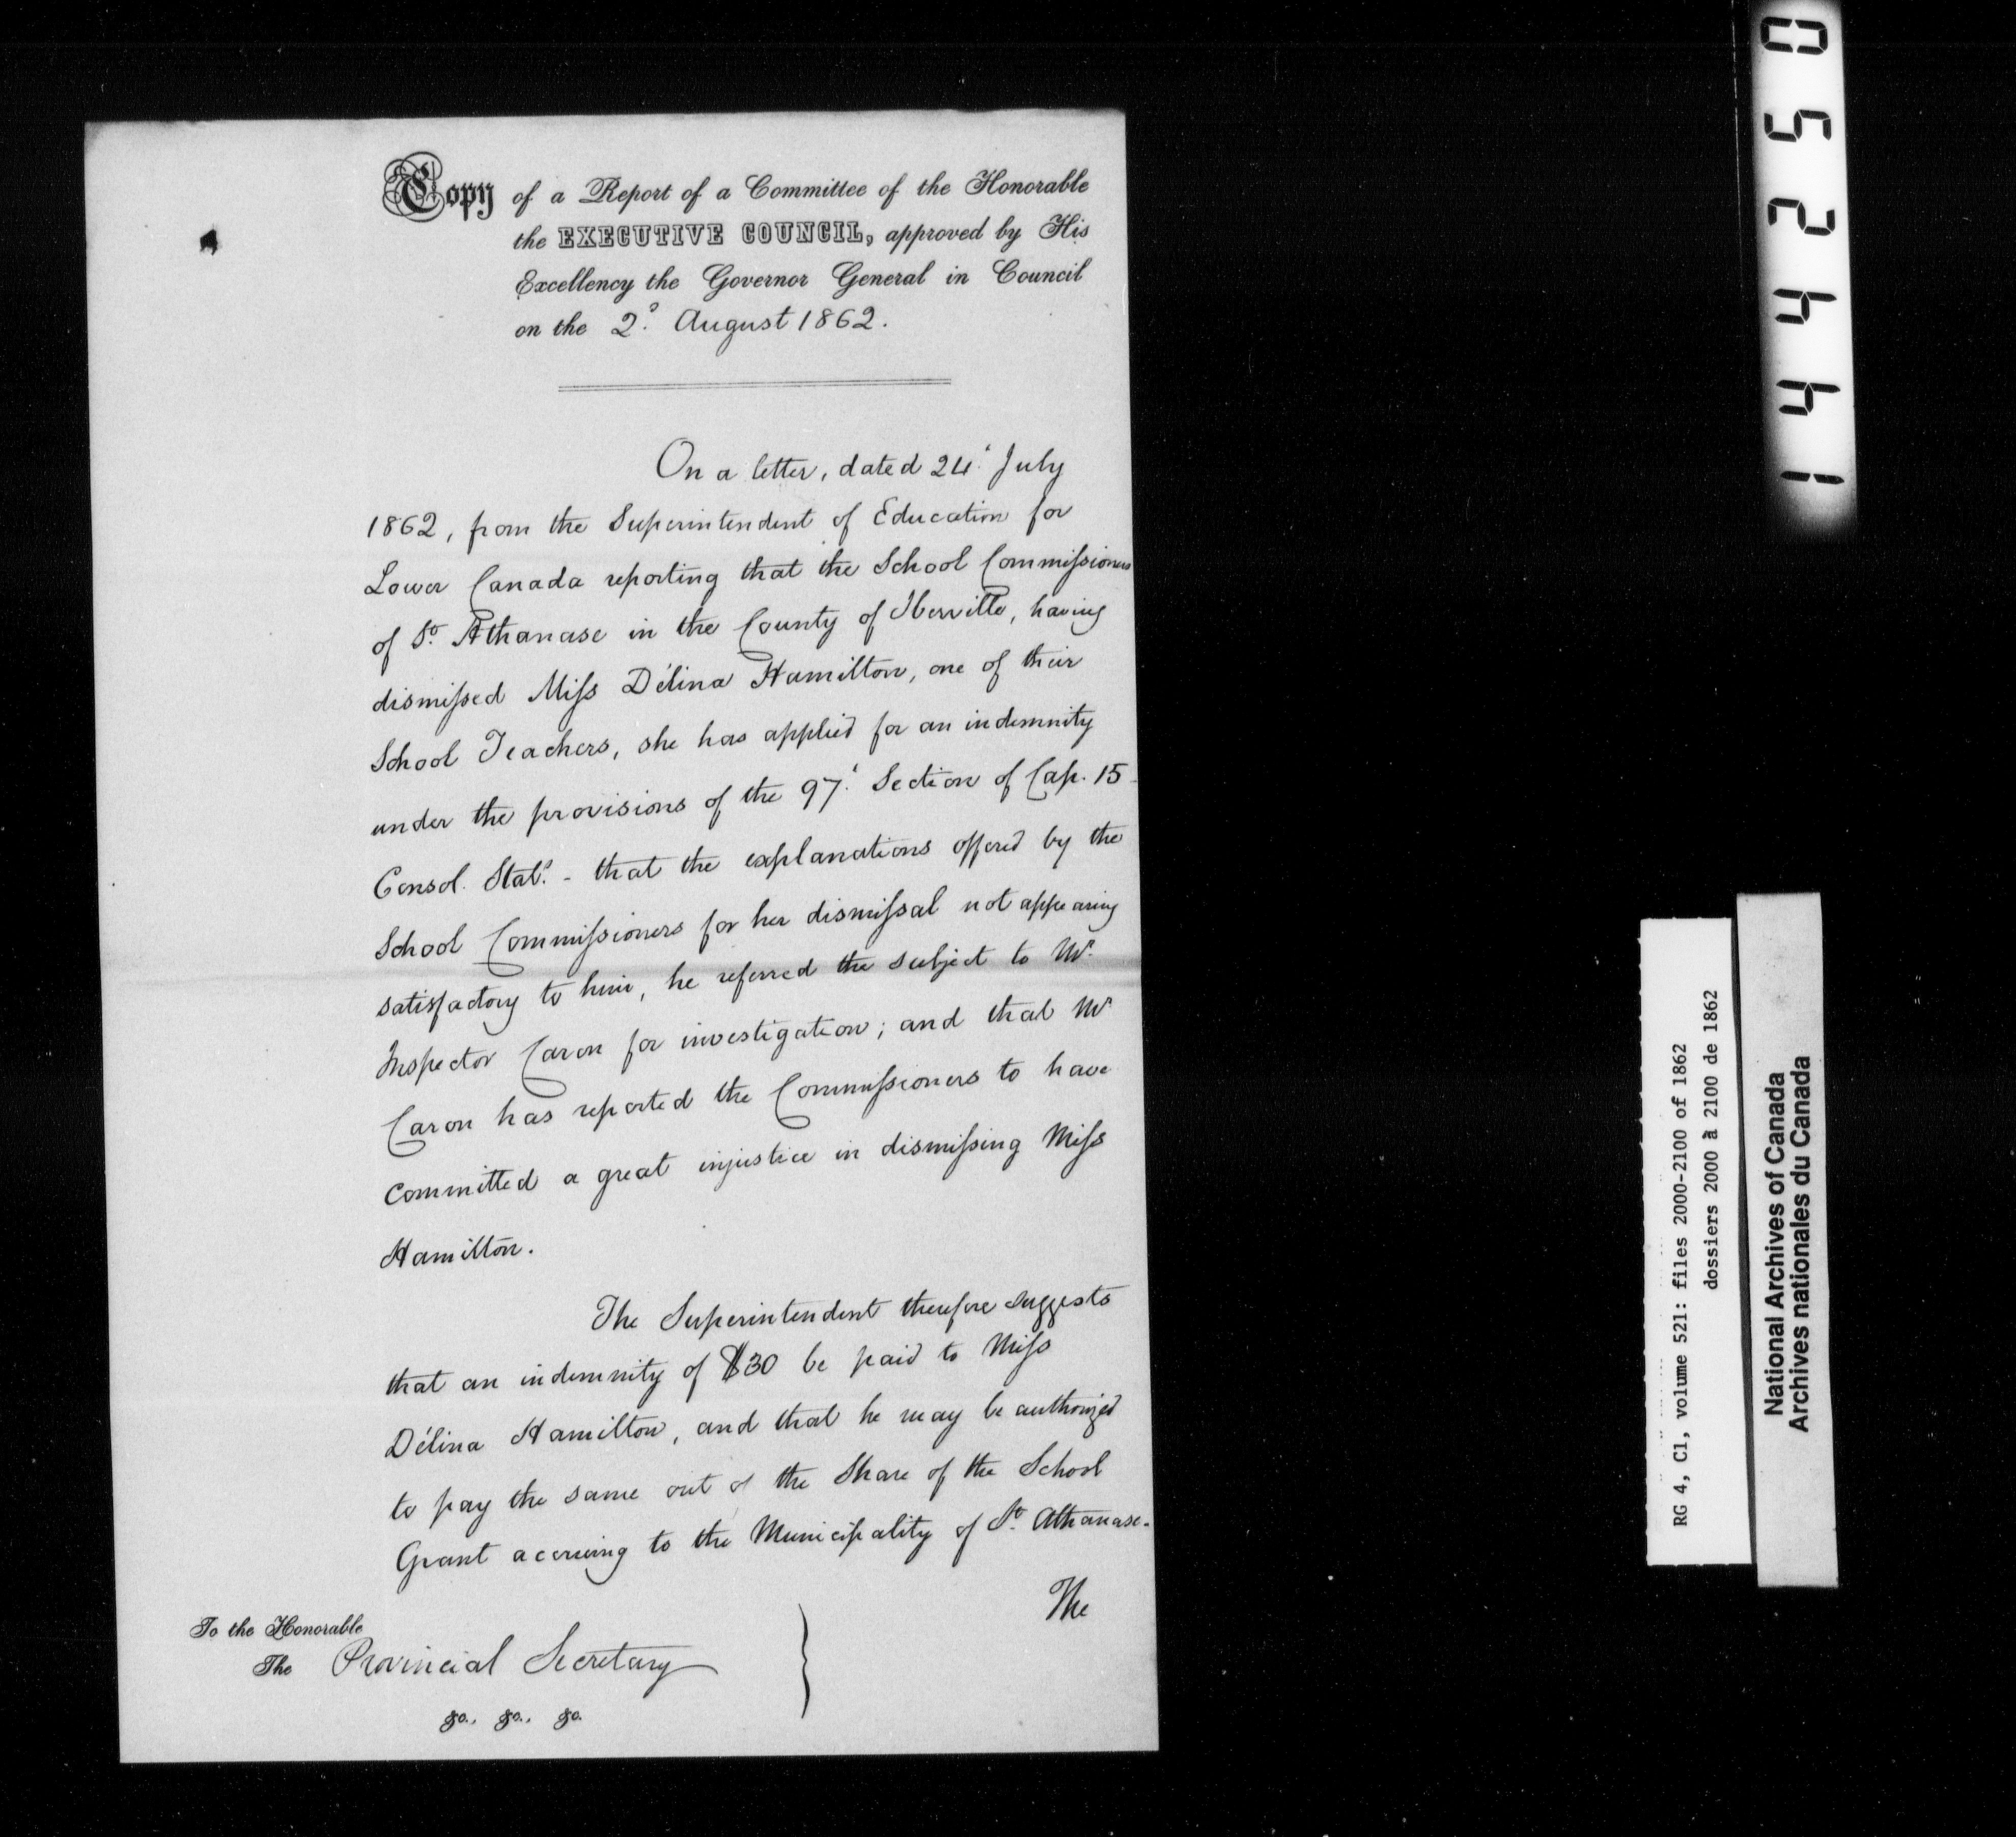 Copy of a Report of a Committee of the Honorable
the EXECUTIVE COUNCIL, approved by His
Excellency the Governor General in Council
on the 2d. August 1862.
On a letter, dated 24. July
1862, from the Superintendent of Education for
Lower Canada reporting that the School Commissioners
of St. Athanase in the County of Iberville, having
dismissed Miss Délina Hamilton, one of their
School Teachers, she has applied for an indemnity
under the provisions of the 97. Section of Cap. 15
Consol. Stats. - that the explanations offered by the
School Commissioners for her dismissal not appearing
satisfactory to him, he referred the subject to Mr.
Inspector Caron for investigation; and that Mr
Caron has reported the Commissioners to have
committed a great injustice in dismissing Miss
Hamilton.
The Superintendent therefore suggests
that an indemnity of $30 be paid to Miss
Délina Hamilton, and that he may be authorized
to pay the same out of the Share of the School
Grant accruing to the Municipality of St. Athanase.
The
To the Honorable
The Provincial Secretary
&c., &c., &c.
05244 1
RG 4, C1, volume 521: files 2000-2100 of 1862
dossiers 2000 à 2100 de 1862
National Archives of Canada
Archives nationales du Canada